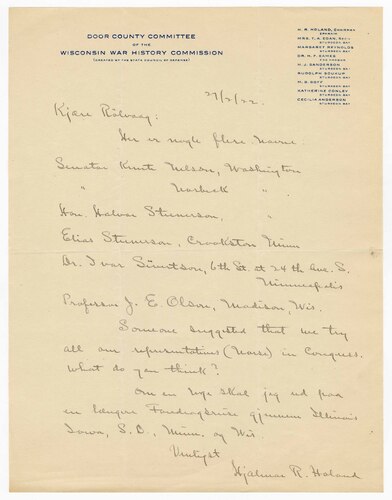 DOOR COUNTY COMMITTEE
OF THE
WISCONSIN WAR HISTORY COMMISSION
(CREATED BY THE STATE COUNCIL OF DEFENSE)
H. R. HOLAND, CHAIRMAN
EPHRAIM
MRS. T. A. EGAN, SEC'Y
STURGEON BAY
MARGARET REYNOLDS
STURGEON BAY
DR. H. F. EAMES
EGG HARBOR
H. J. SANDERSON
STURGEON BAY
RUDOLPH SOUKUP
STURGEON BAY
M. B. GOFF
STURGEON BAY
KATHERINE CONLEY
STURGEON BAY
CECILIA ANDERSON
STURGEON BAY
27/2/22.
Kjære Rölvaag:
Her er nogle flere Navne.
Senator Knute Nelson, Washington
" Norbeck "
Hon. Halvor Steenerson, "
Elias Steenerson, Crookston Minn
Dr. Ivar Sivertson, 6th St. at 24th Ave. S.
Minneapolis
Professor J. E. Olson, Madison, Wis.
Someone suggested that we try
all our representatives (Norse) in Congress.
What do you think?
Om en Uge skal jeg ud paa
en længere Foredragsreise gjennem Illinois
Iowa, S. D., Minn. og Wis
Venligst
Hjalmar R. Holand